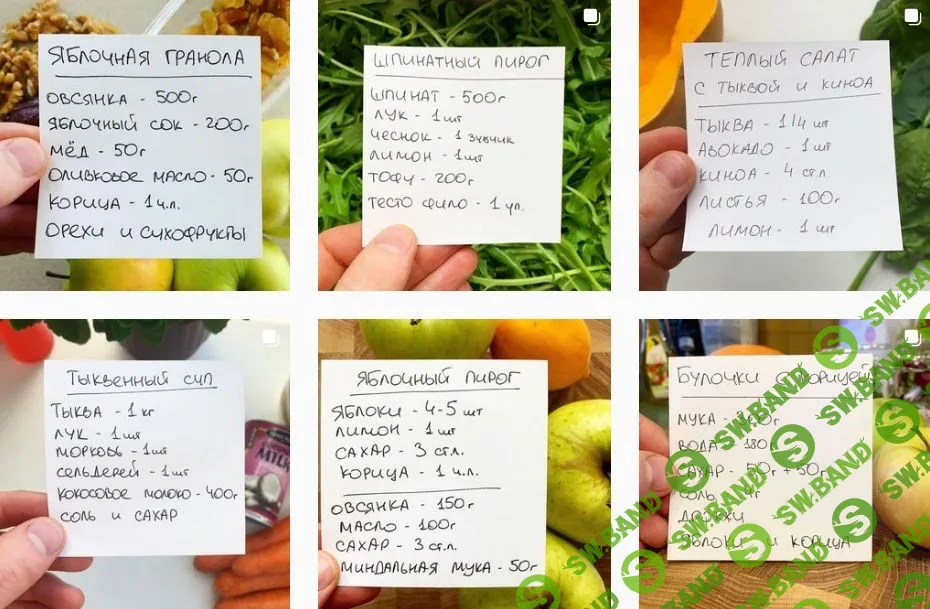 ЯБЛОЧНАЯ ГРАНОЛА
ОВСЯНКА - 500г
ЯБЛОЧНЫЙ СОК - 200г
МЁД - 50г
ОЛИВКОВОЕ МАСЛО - 50г
КОРИЦА - 1 ч.л.
ОРЕХИ И СУХОФРУКТЫ
ШПИНАТНЫЙ ПИРОГ
ШПИНАТ - 500г
ЛУК - 1 шт
ЧЕСНОК - 1 зубчик
ЛИМОН - 1 шт
ТОФУ - 200г
ТЕСТО ФИЛО - 1 уп.
ТЕПЛЫЙ САЛАТ
С ТЫКВОЙ И КИНОА
ТЫКВА - 1/4 шт
АВОКАДО - 1 шт
КИНОА - 4 ст.л.
ЛИСТЬЯ - 100г
ЛИМОН - 1 шт
ТЫКВЕННЫЙ СУП
ТЫКВА - 1 кг
ЛУК - 1 шт
МОРКОВЬ - 1 шт
СЕЛЬДЕРЕЙ - 1 шт
КОКОСОВОЕ МОЛОКО - 400г
СОЛЬ И САХАР
MILK
ЯБЛОЧНЫЙ ПИРОГ
ЯБЛОКИ - 4-5 шт
ЛИМОН - 1 шт
САХАР - 3 ст.л.
КОРИЦА - 1 ч.л.
ОВСЯНКА - 150г
МАСЛО - 100г
САХАР - 3 ст.л.
МИНДАЛЬНАЯ МУКА - 50г
БУЛОЧКИ С КОРИЦЕЙ
МУКА -
ВОДА - 180
САХАР - 50г + 50г
СОЛЬ -
ДРОЖЖИ
ЯБЛОКИ И КОРИЦА
SW.BAND
SW.BAND
SW.BAND
SW.BAND
SW.BAND
SW.BAND
SW.BAND